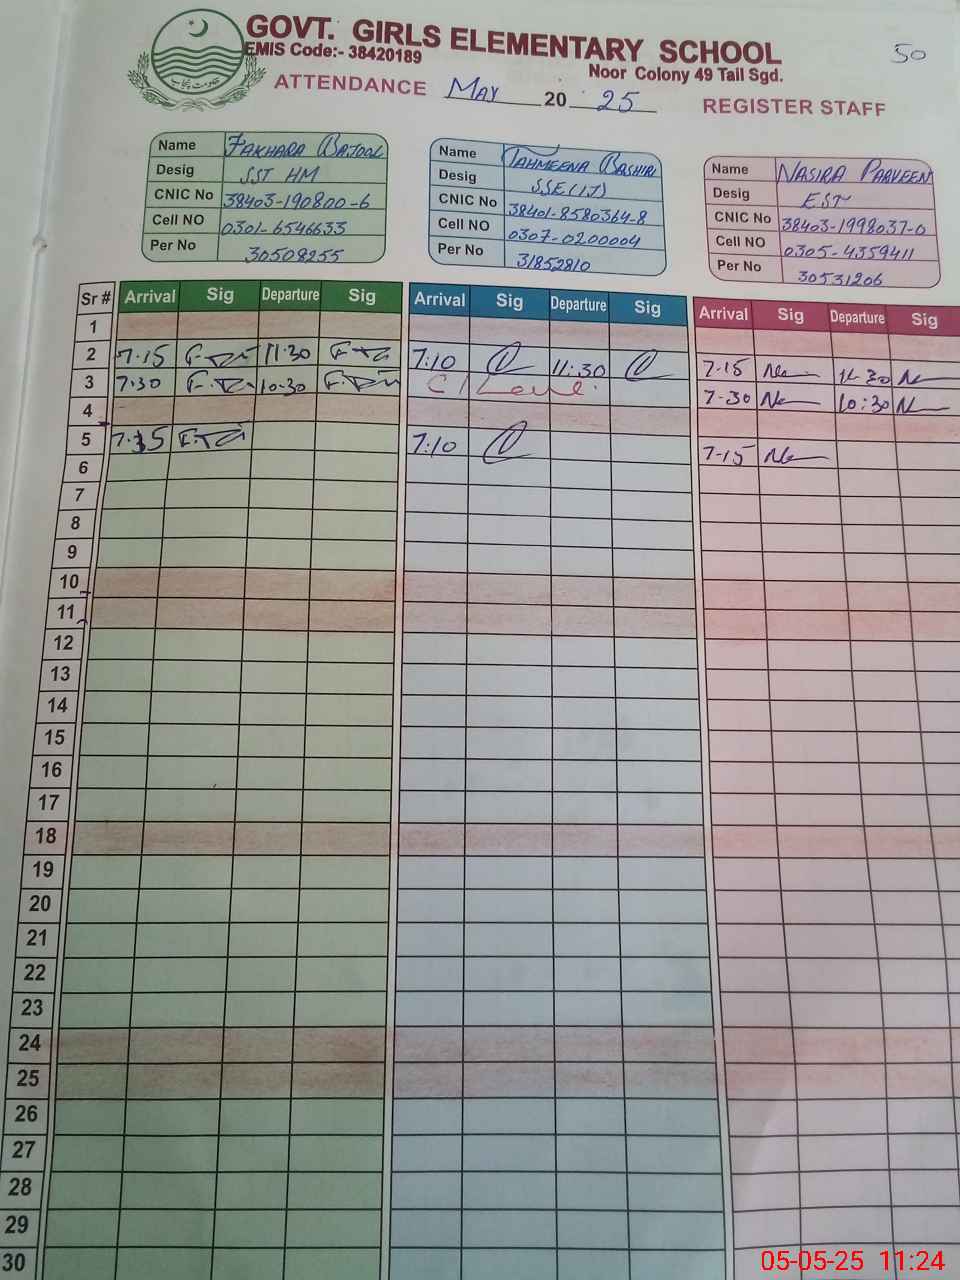 GOVT. GIRLS ELEMENTARY SCHOOL
EMIS Code:- 38420189
Noor Colony 49 Tail Sgd.
50
ATTENDANCE May 2025 REGISTER STAFF
حکومت پنجاب
Name FAKHARA BATOOL
Desig SST HM
CNIC No 38403-190800-6
Cell NO 0301-6546633
Per No 30508255
Name TAHMEENA BASHIR
Desig SSE(IT)
CNIC No 38401-8580364-8
Cell NO 0307-0200004
Per No 31852810
Name NASIRA PARVEEN
Desig EST
CNIC No 38403-1998037-0
Cell NO 0305-4359411
Per No 30531206
Sr # Arrival Sig Departure Sig Arrival Sig Departure Sig Arrival Sig Departure Sig
1
2 7-15 11:30 7:10 11:30 7-15 11-30
3 7:30 10-30 C/Leave. 7-30 10:30
4
5 7:10 7-15
6
7
8
9
10
11
12
13
14
15
16
17
18
19
20
21
22
23
24
25
26
27
28
29
30
05-05-25 11:24